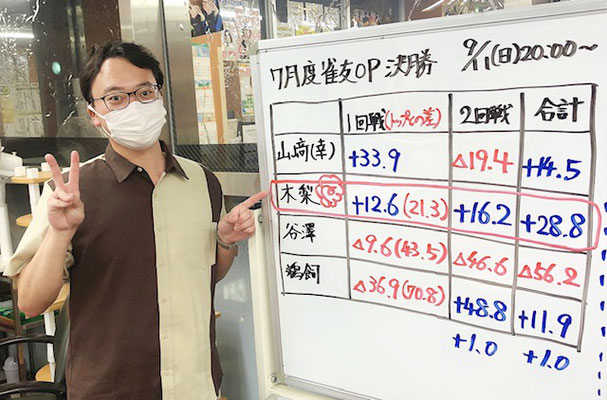 7月度雀友OP 決勝 9/1(日)20:00〜
1回戦(トップとの差) 2回戦 合計
山﨑(幸) +33.9 △19.4 +14.5
木梨 +12.6(21.3) +16.2 +28.8
谷澤 △9.6(43.5) △46.6 △56.2
鵜飼 △36.9(70.8) +48.8 +11.9
+1.0 +1.0